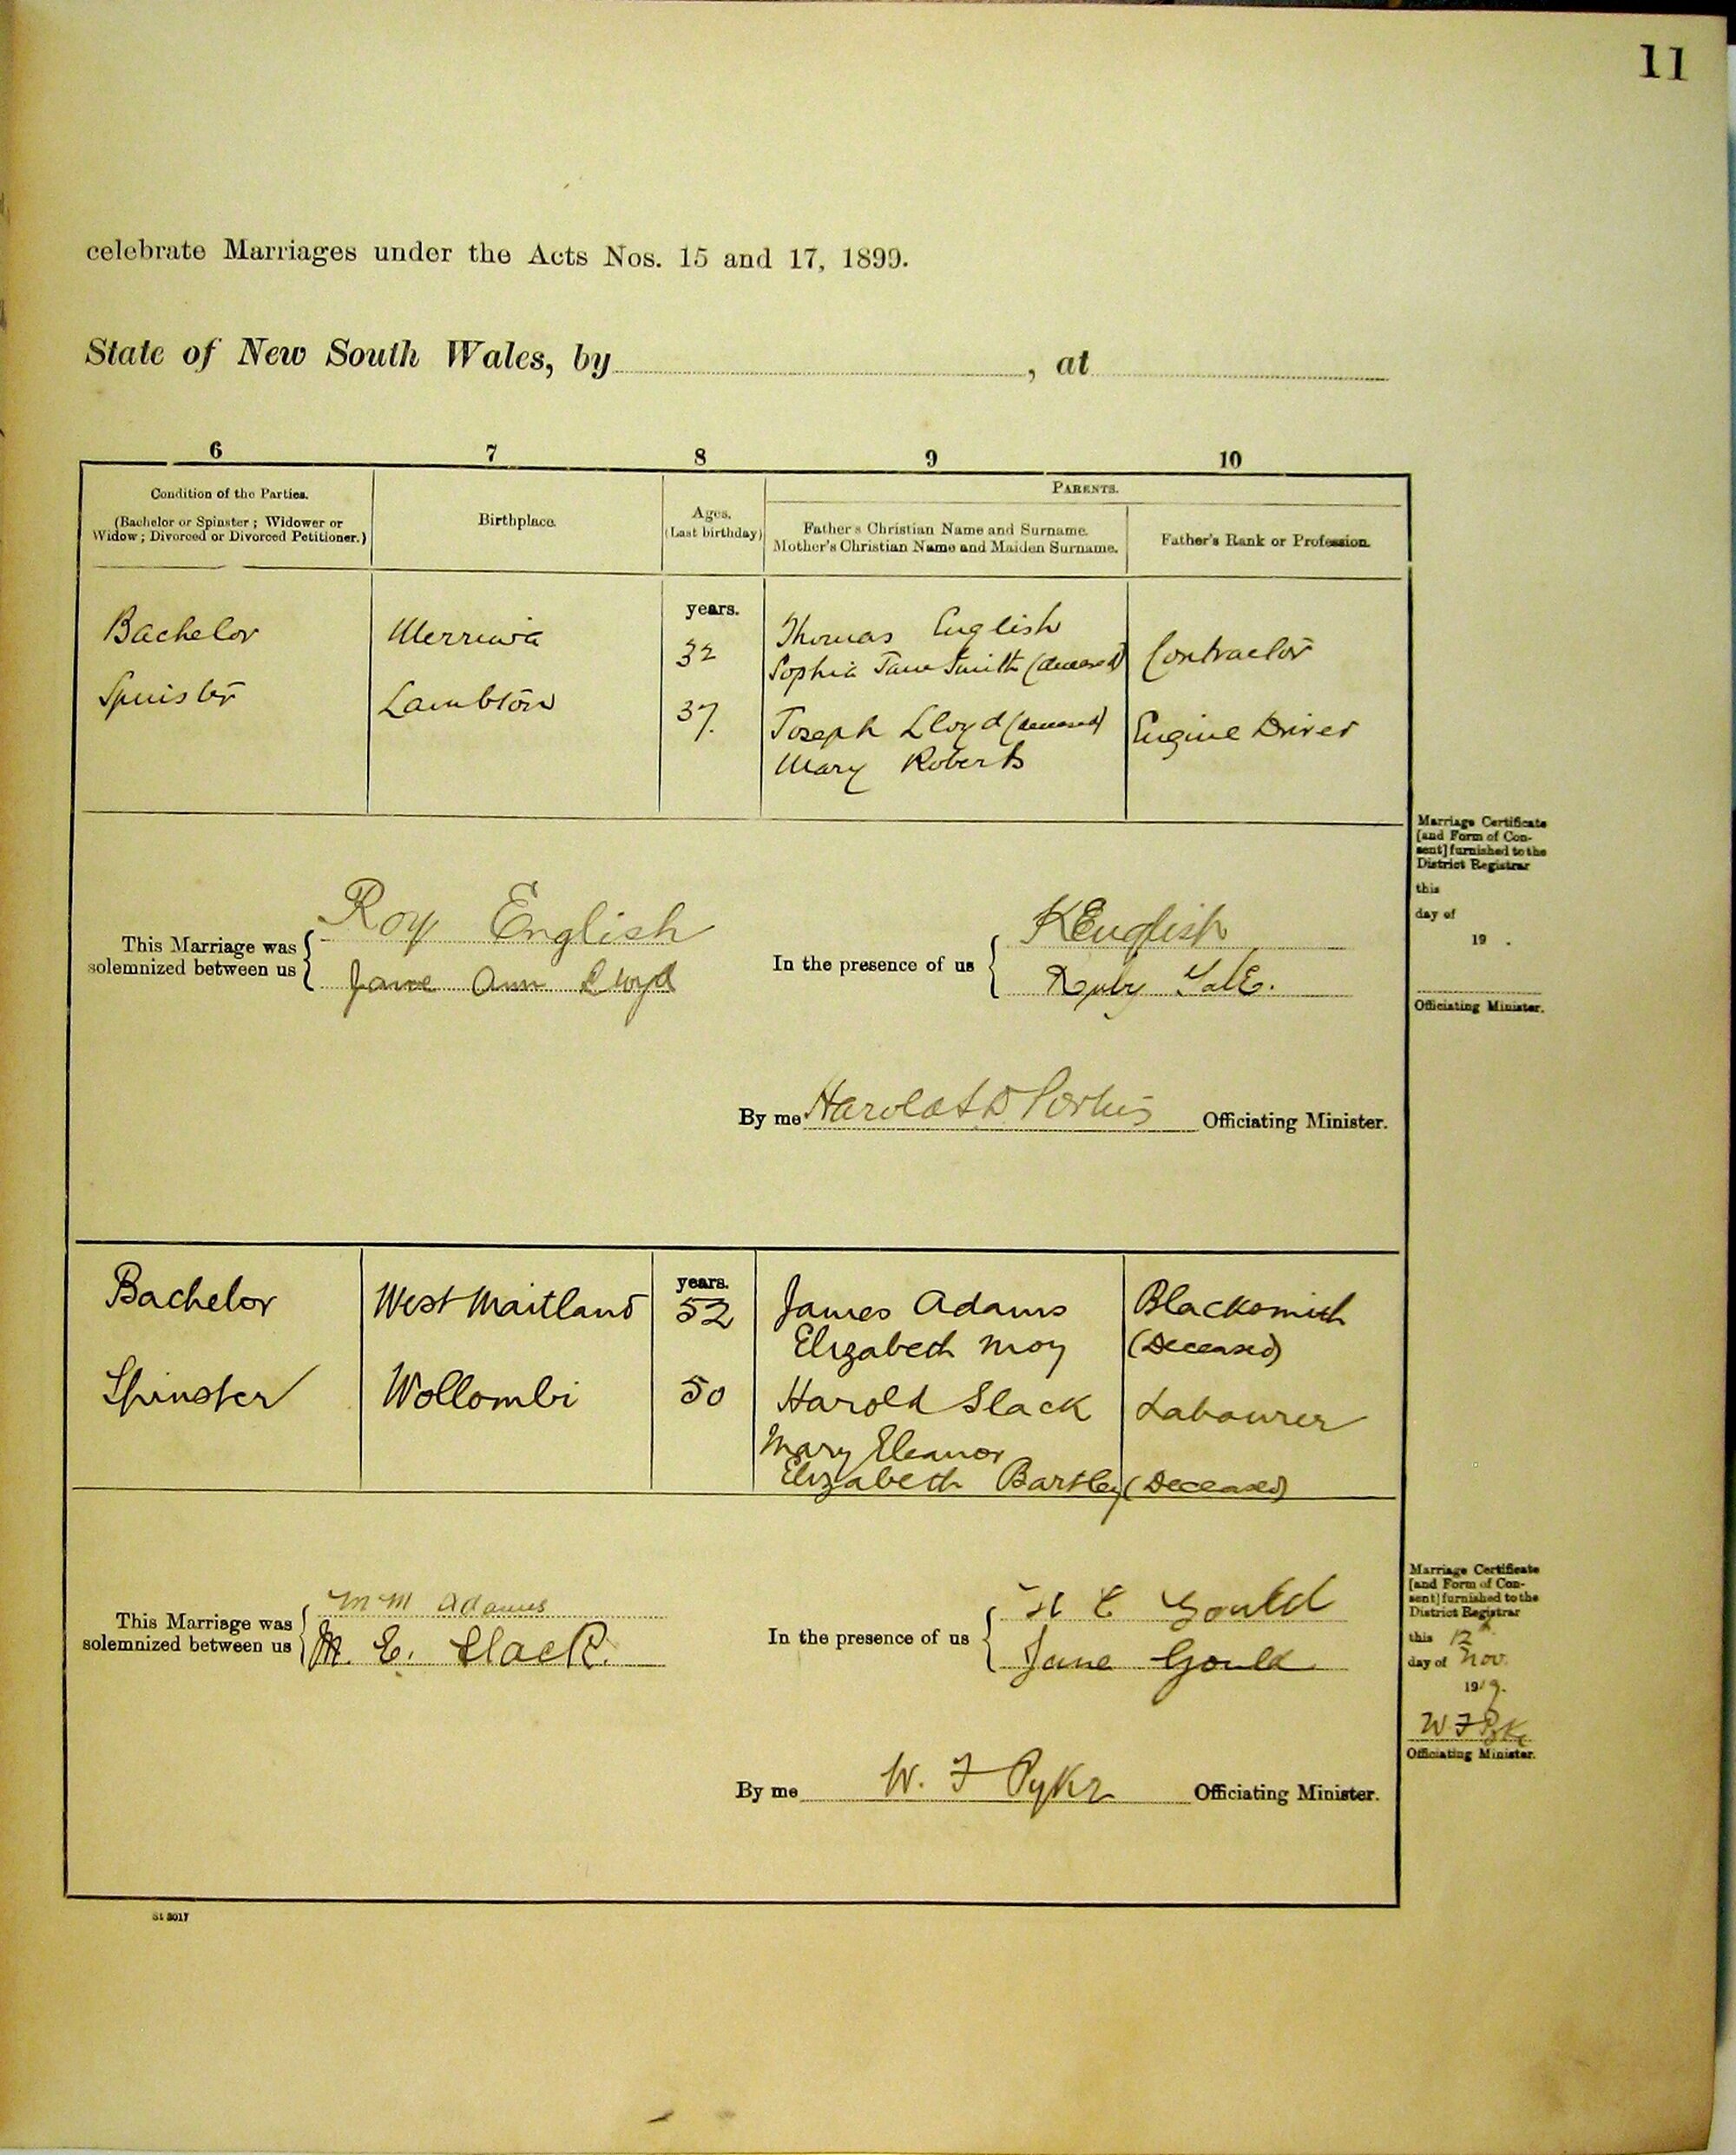 11
celebrate Marriages under the Acts Nos. 15 and 17, 1899.
State of New South Wales, by , at
6 7 8 9 10
Condition of the Parties.
(Bachelor or Spinster ; Widower or
Widow ; Divorced or Divorced Petitioner.)
Birthplace.
Ages.
(Last birthday)
PARENTS.
Father's Christian Name and Surname.
Mother's Christian Name and Maiden Surname.
Father's Rank or Profession.
years.
Bachelor Merriwa 32 Thomas English Contractor
Sophia Jane Smith (deceased)
Spinster Lambton 37. Joseph Lloyd (deceased) Engine Driver
Mary Roberts
Marriage Certificate
[and Form of Con-
sent] furnished to the
District Registrar
this
day of
19 .
Officiating Minister.
This Marriage was
solemnized between us
Roy English
Jane Ann Lloyd
In the presence of us
K English
Ruby
By me Harold Officiating Minister.
years.
Bachelor West Maitland 52 James Adams Blacksmith
Elizabeth Moy (Deceased)
Spinster Wollombi 50 Harold Slack Labourer
Mary Eleanor
Elizabeth Bartley (Deceased)
This Marriage was
solemnized between us
M M Adams
M. E. Slack.
In the presence of us
H E Gould
Jane Gould
By me W. F Pyke Officiating Minister.
Marriage Certificate
[and Form of Con-
sent] furnished to the
District Registrar
this 12th
day of Nov.
1919.
W F Pyke
Officiating Minister.
St 3017